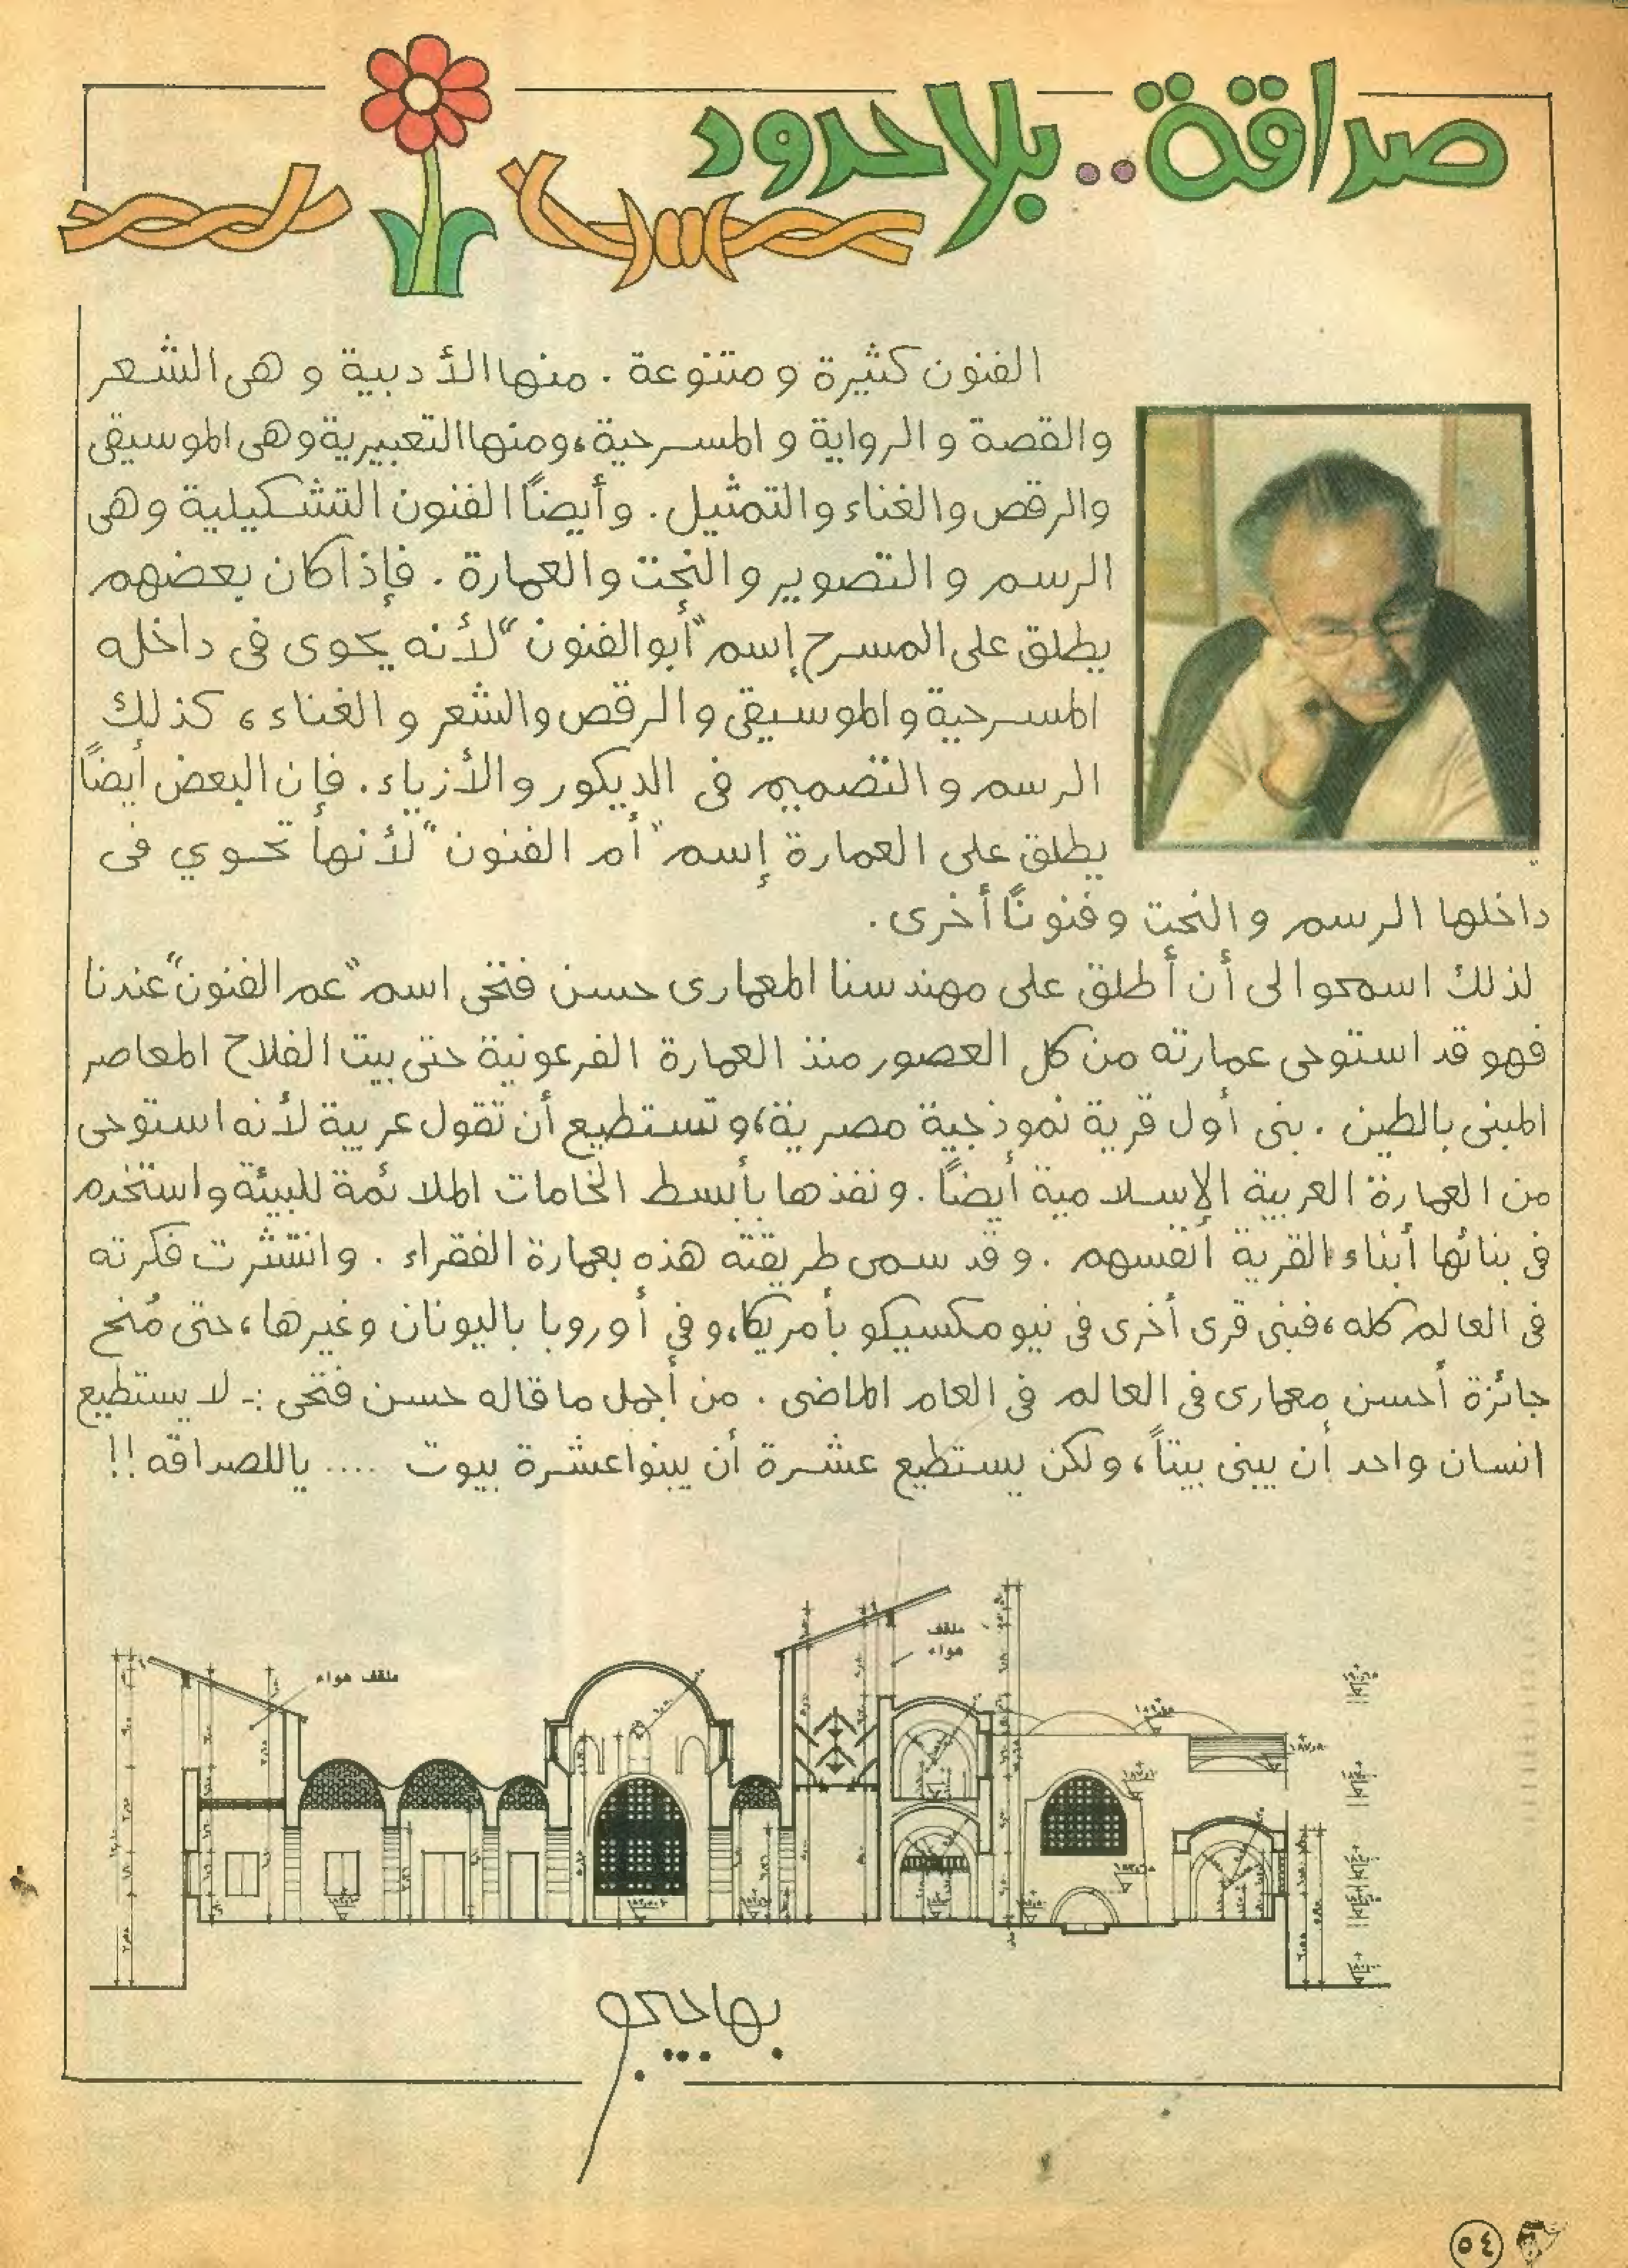 صداقة.. بلا حدود
الفنون كثيرة ومتنوعة. منها الأدبية وهى الشعر
والقصة والرواية والمسرحية، ومنها التعبيرية وهى الموسيقى
والرقص والغناء والتمثيل. وأيضاً الفنون التشكيلية وهى
الرسم والتصوير والنحت والعمارة. فإذا كان بعضهم
يطلق على المسرح إسم "أبو الفنون" لأنه يحوى فى داخله
المسرحية والموسيقى والرقص والشعر والغناء، كذلك
الرسم والتصميم فى الديكور والأزياء. فإن البعض أيضاً
يطلق على العمارة إسم "أم الفنون" لأنها تحوي فى
داخلها الرسم والنحت وفنوناً أخرى.
لذلك اسمحوا لى أن أطلق على مهندسنا المعمارى حسن فتحى اسم "عم الفنون" عندنا
فهو قد استوحى عمارته من كل العصور منذ العمارة الفرعونية حتى بيت الفلاح المعاصر
المبنى بالطين. بنى أول قرية نموذجية مصرية، وتستطيع أن تقول عربية لأنه استوحى
من العمارة العربية الإسلامية أيضاً. ونفذها بأبسط الخامات الملائمة للبيئة واستخدم
فى بنائها أبناء القرية أنفسهم. وقد سمى طريقته هذه بعمارة الفقراء. وانتشرت فكرته
فى العالم كله، فبنى قرى أخرى فى نيومكسيكو بأمريكا، وفى أوروبا باليونان وغيرها، حتى مُنح
جائزة أحسن معمارى فى العالم فى العام الماضى. من أجمل ما قاله حسن فتحى :- لا يستطيع
انسان واحد أن يبنى بيتاً، ولكن يستطيع عشرة أن يبنوا عشرة بيوت .... ياللصداقه!!
ملقف
هواء
ملقف هواء
بهاجيجو
٥٤